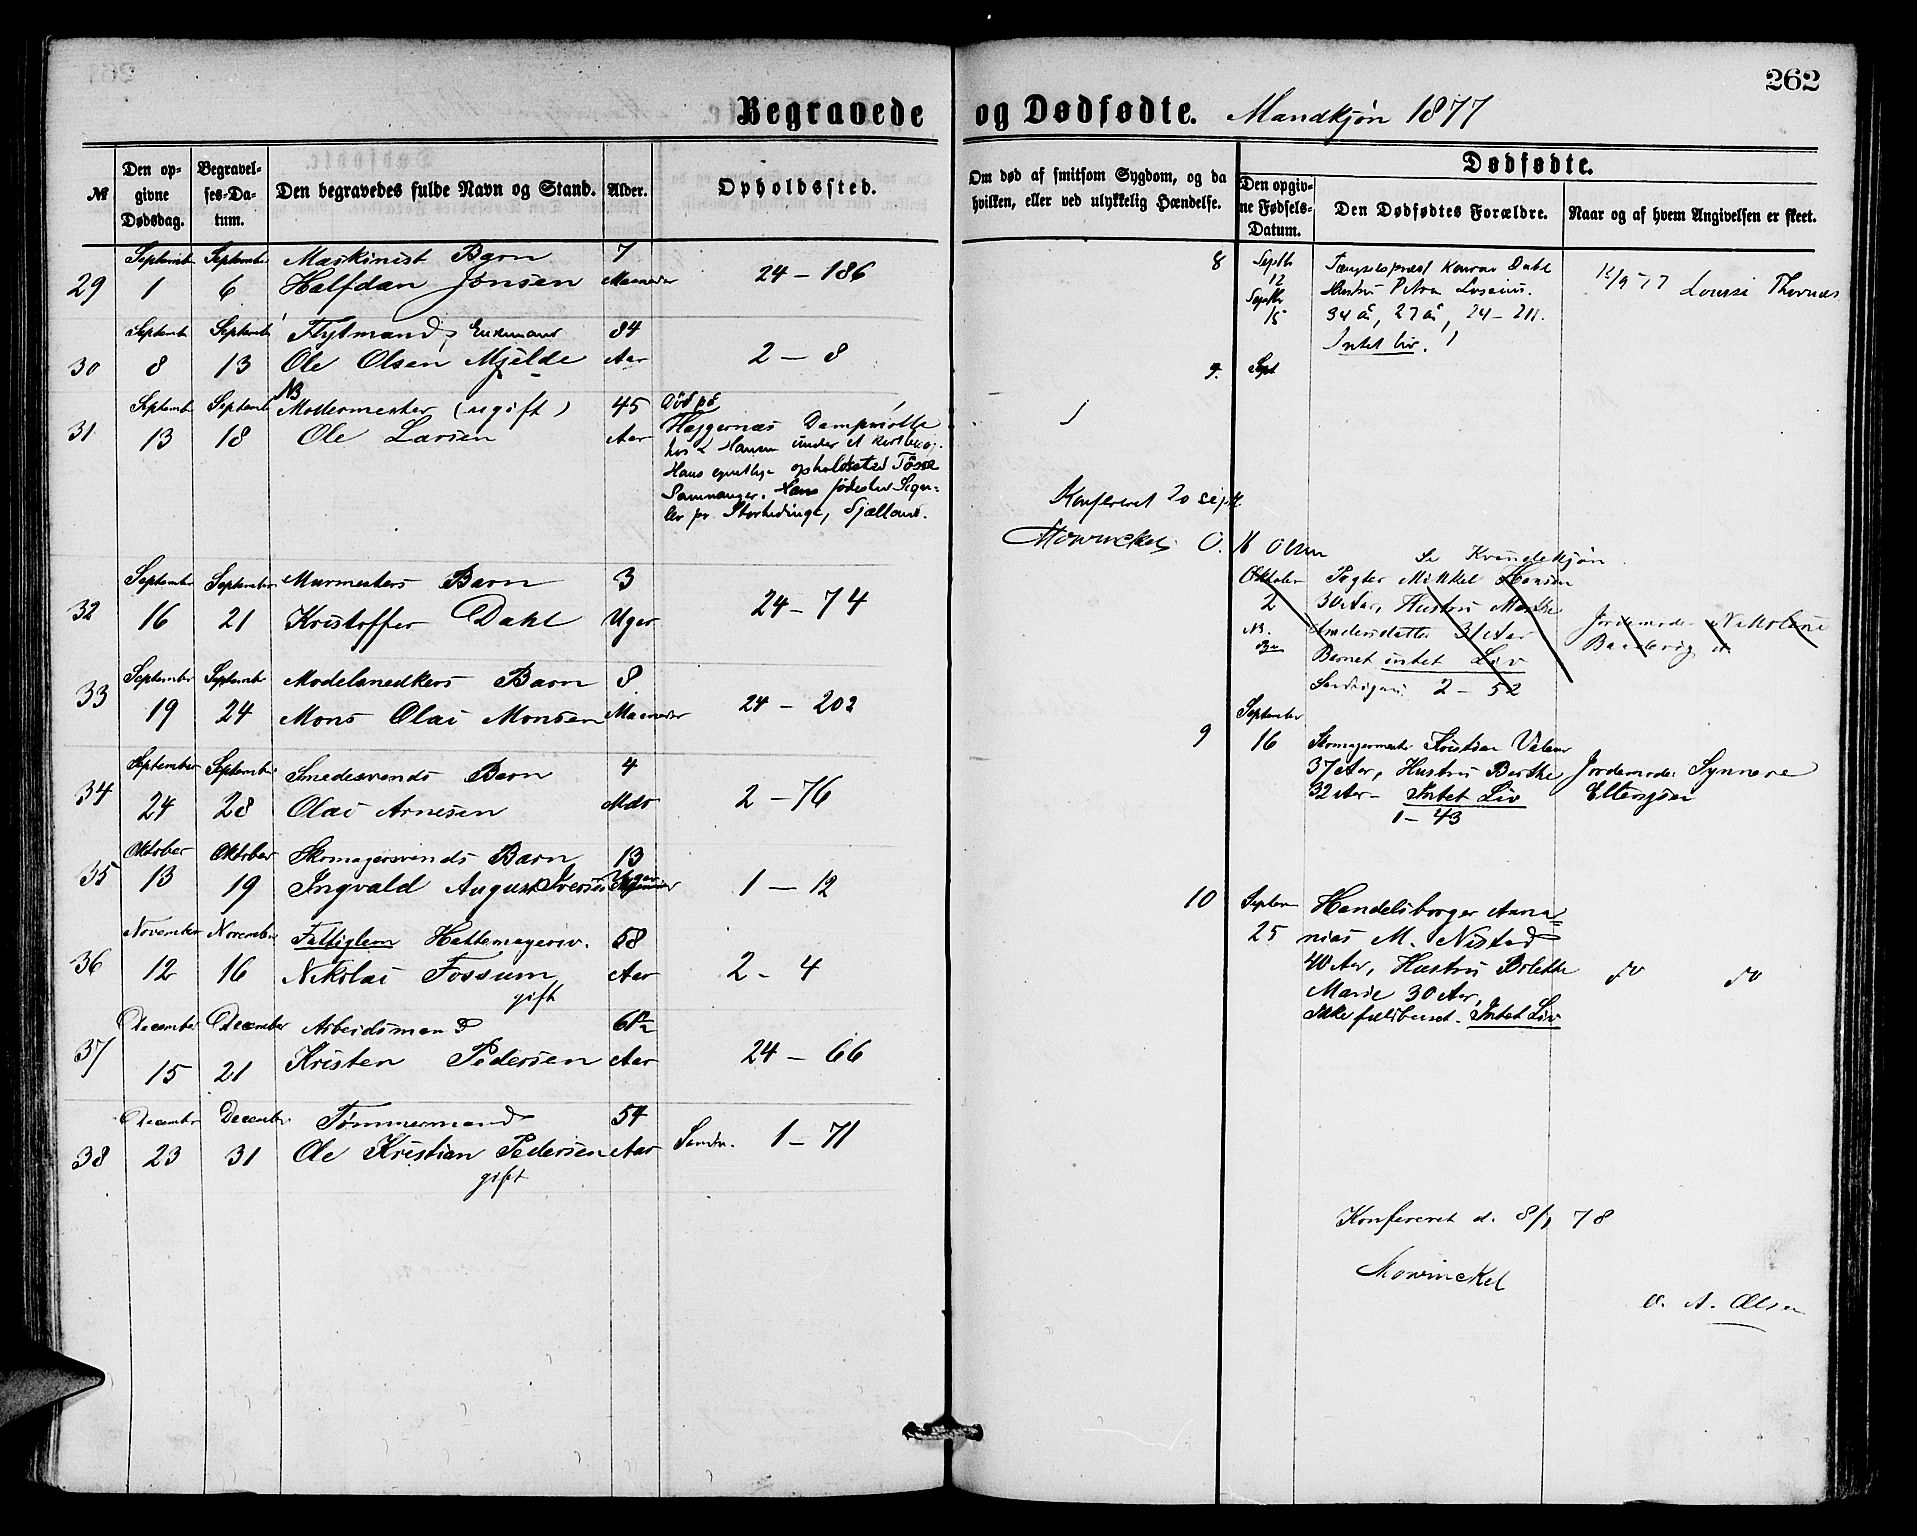 262
Begravede og Dødfødte. Mandkjøn 1877
№
Den opgivne Dødsdag.
Begravelses-Datum.
Den begravedes fulde Navn og Stand.
Alder.
Opholdssted.
Om død af smitsom Sygdom, og da hvilken, eller ved ulykkelig Hændelse.
Dødfødte.
Den opgivne Fødsels-Datum.
Den Dødfødtes Forældre.
Naar og af hvem Angivelsen er skeet.
Septemb September Maskinist Barn 7
29 1 6 Halfdan Jonsen Maaneder 24 - 186
Septemb Septemb Flytmand, Enkemand 84
30 8 13 Ole Olsen Mjelde Aar 2 - 8
NB
Septemb Septemb Modermester (ugift) 45 Død på
31 13 18 Ole Larsen Aar
hos Hansen under et kort besøg.
Hans egentlige opholdssted Tösse
Samnanger. Hans fødested
pr Storhedinge, Sjælland.
September September Murmesters Barn 3
32 16 21 Kristoffer Dahl Uger 24 - 74
September Septembr Modelsnedkers Barn 8
33 19 24 Mons Olai Monsen Maaneder 24 - 202
September September Smedesvends Barn 4
34 24 28 Olai Arnesen Mdr 2 - 76
Oktober Oktober Skomagersvends Barn 13
35 13 19 Ingvald August Iversen Uger 1 - 12
November November Fattiglem Hattemagersv. 58
36 12 16 Nikolai Fossum Aar 2 - 4
gift
December December Arbeidsmand 61½
37 15 21 Kristen Pedersen Aar 24 - 66
December December Tømmermand 54
38 23 31 Ole Kristian Pedersen Aar Sandv. 1 - 71
gift
8 Septb 12 Fængselspræst Konrad Dahl
Septbr 15 Hustru Petra
34 år, 27 år, 24 - 211.
Intet liv.
15/9 77 Lovise Thornæs
9. Sept
Konfereret 20 Sept
Mowinckel O. A Olsen
Se Kvindekjøn
Oktober Pogter Mikkel Hansen
2 30 Aar, Hustru Marthe
NB. Andersdatter 31 Aar
Barnet intet Liv
2 - 52
Jordemoder Nikoline
September
9 16 Skomagermester Kristian
37 Aar, Hustru Berthe
32 Aar - Intet Liv
1 - 43
Jordemoder Synneve
Ellingsen
10 Septem Handelsborger Anna-
25 nias M. Nistad
40 Aar, Hustru Bolette
Marie 30 Aar,
Ikke fuldbaaret. Intet Liv
do do
Konfereret d. 8/1 78
Mowinckel
O. A. Olsen